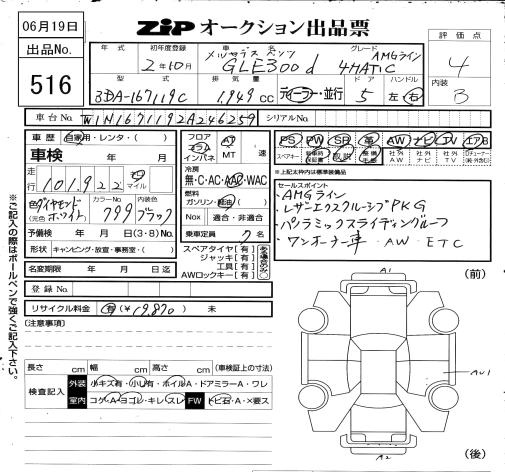 06月19日
ZiPオークション出品票
出品No.
516
評価点
4
内装
B
年式 初年度登録 車名 グレード
2年10月 メルセデスベンツ GLE300d 4MATIC AMGライン
型式 排気量 ドア ハンドル
3DA-167119C 1,949cc ディーラー・並行 5 左・右
車台No. W1N1671192A246259 シリアルNo.
車歴 自家用・レンタ・( )
車検 年 月
走行 101,922 km マイル
色 ダイヤモンドホワイト (元色) カラーNo. 799 内装色 ブラック
予備検 年 月 日(3・8)No.
形状 キャンピング・放送・事務室・( )
名変期限 年 月 日迄
フロア コラム インパネ AT MT 速
冷房 無・C・AC・AAC・WAC
燃料 ガソリン・軽油( )
Nox 適合・非適合
乗車定員 7名
スペアタイヤ[有]
ジャッキ[有]
工具[有]
AWロックキー[有]
PS PW SR 革 AW ナビ TV エアB
スペアキー 保証書 取説 社外AW 社外ナビ 社外TV
※上記太枠内は標準装備品
セールスポイント
・AMGライン
・レザーエクスクルーシブPKG
・パノラミックスライディングルーフ
・ワンオーナー車 ・AW ・ETC
登録No.
リサイクル料金 有(¥19,870) 未
(注意事項)
長さ cm 幅 cm 高さ cm (車検証上の寸法)
検査記入 外装 小キズ有・小凹有・ホイルA・ドアミラーA・ワレ
室内 コゲ・A・ヨゴレ・キレ・スレ FW トビ石・A・×要ス
※ご記入の際はボールペンで強くご記入下さい。
(前)
A1
AU1
A2
(後)